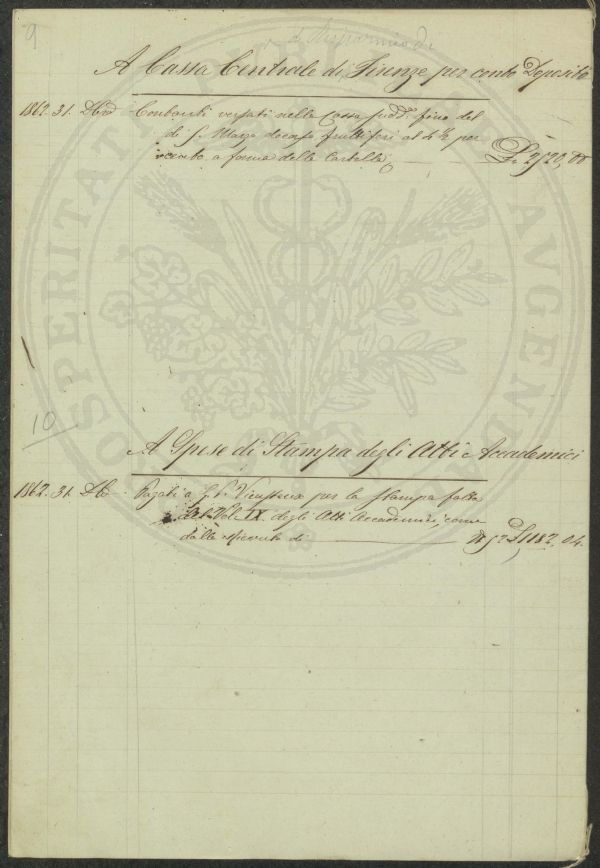 9
di Risparmio di
A Cassa Centrale di Firenze per conto Deposito
1862. 31. Xbre Contanti versati nella Cassa sudd. fino del
di 5. Marzo decorso fruttiferi al 4 % per
cento a forma della Cartella
PROSPERITATI AUGENDAE
10
A Spese di Stampa degli Atti Accademici
1862. 31. Xbre Pagati a G. P. Vieusseux per la stampa fatta
del Vol. IX. degli Atti Accademici come
dalla ricevuta di 1182. 04.